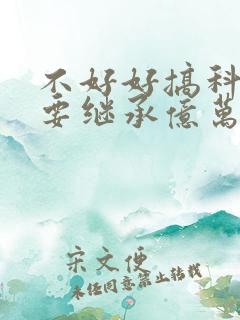 不好好搞科
要继承億萬
宋文便
未经同意禁止转载